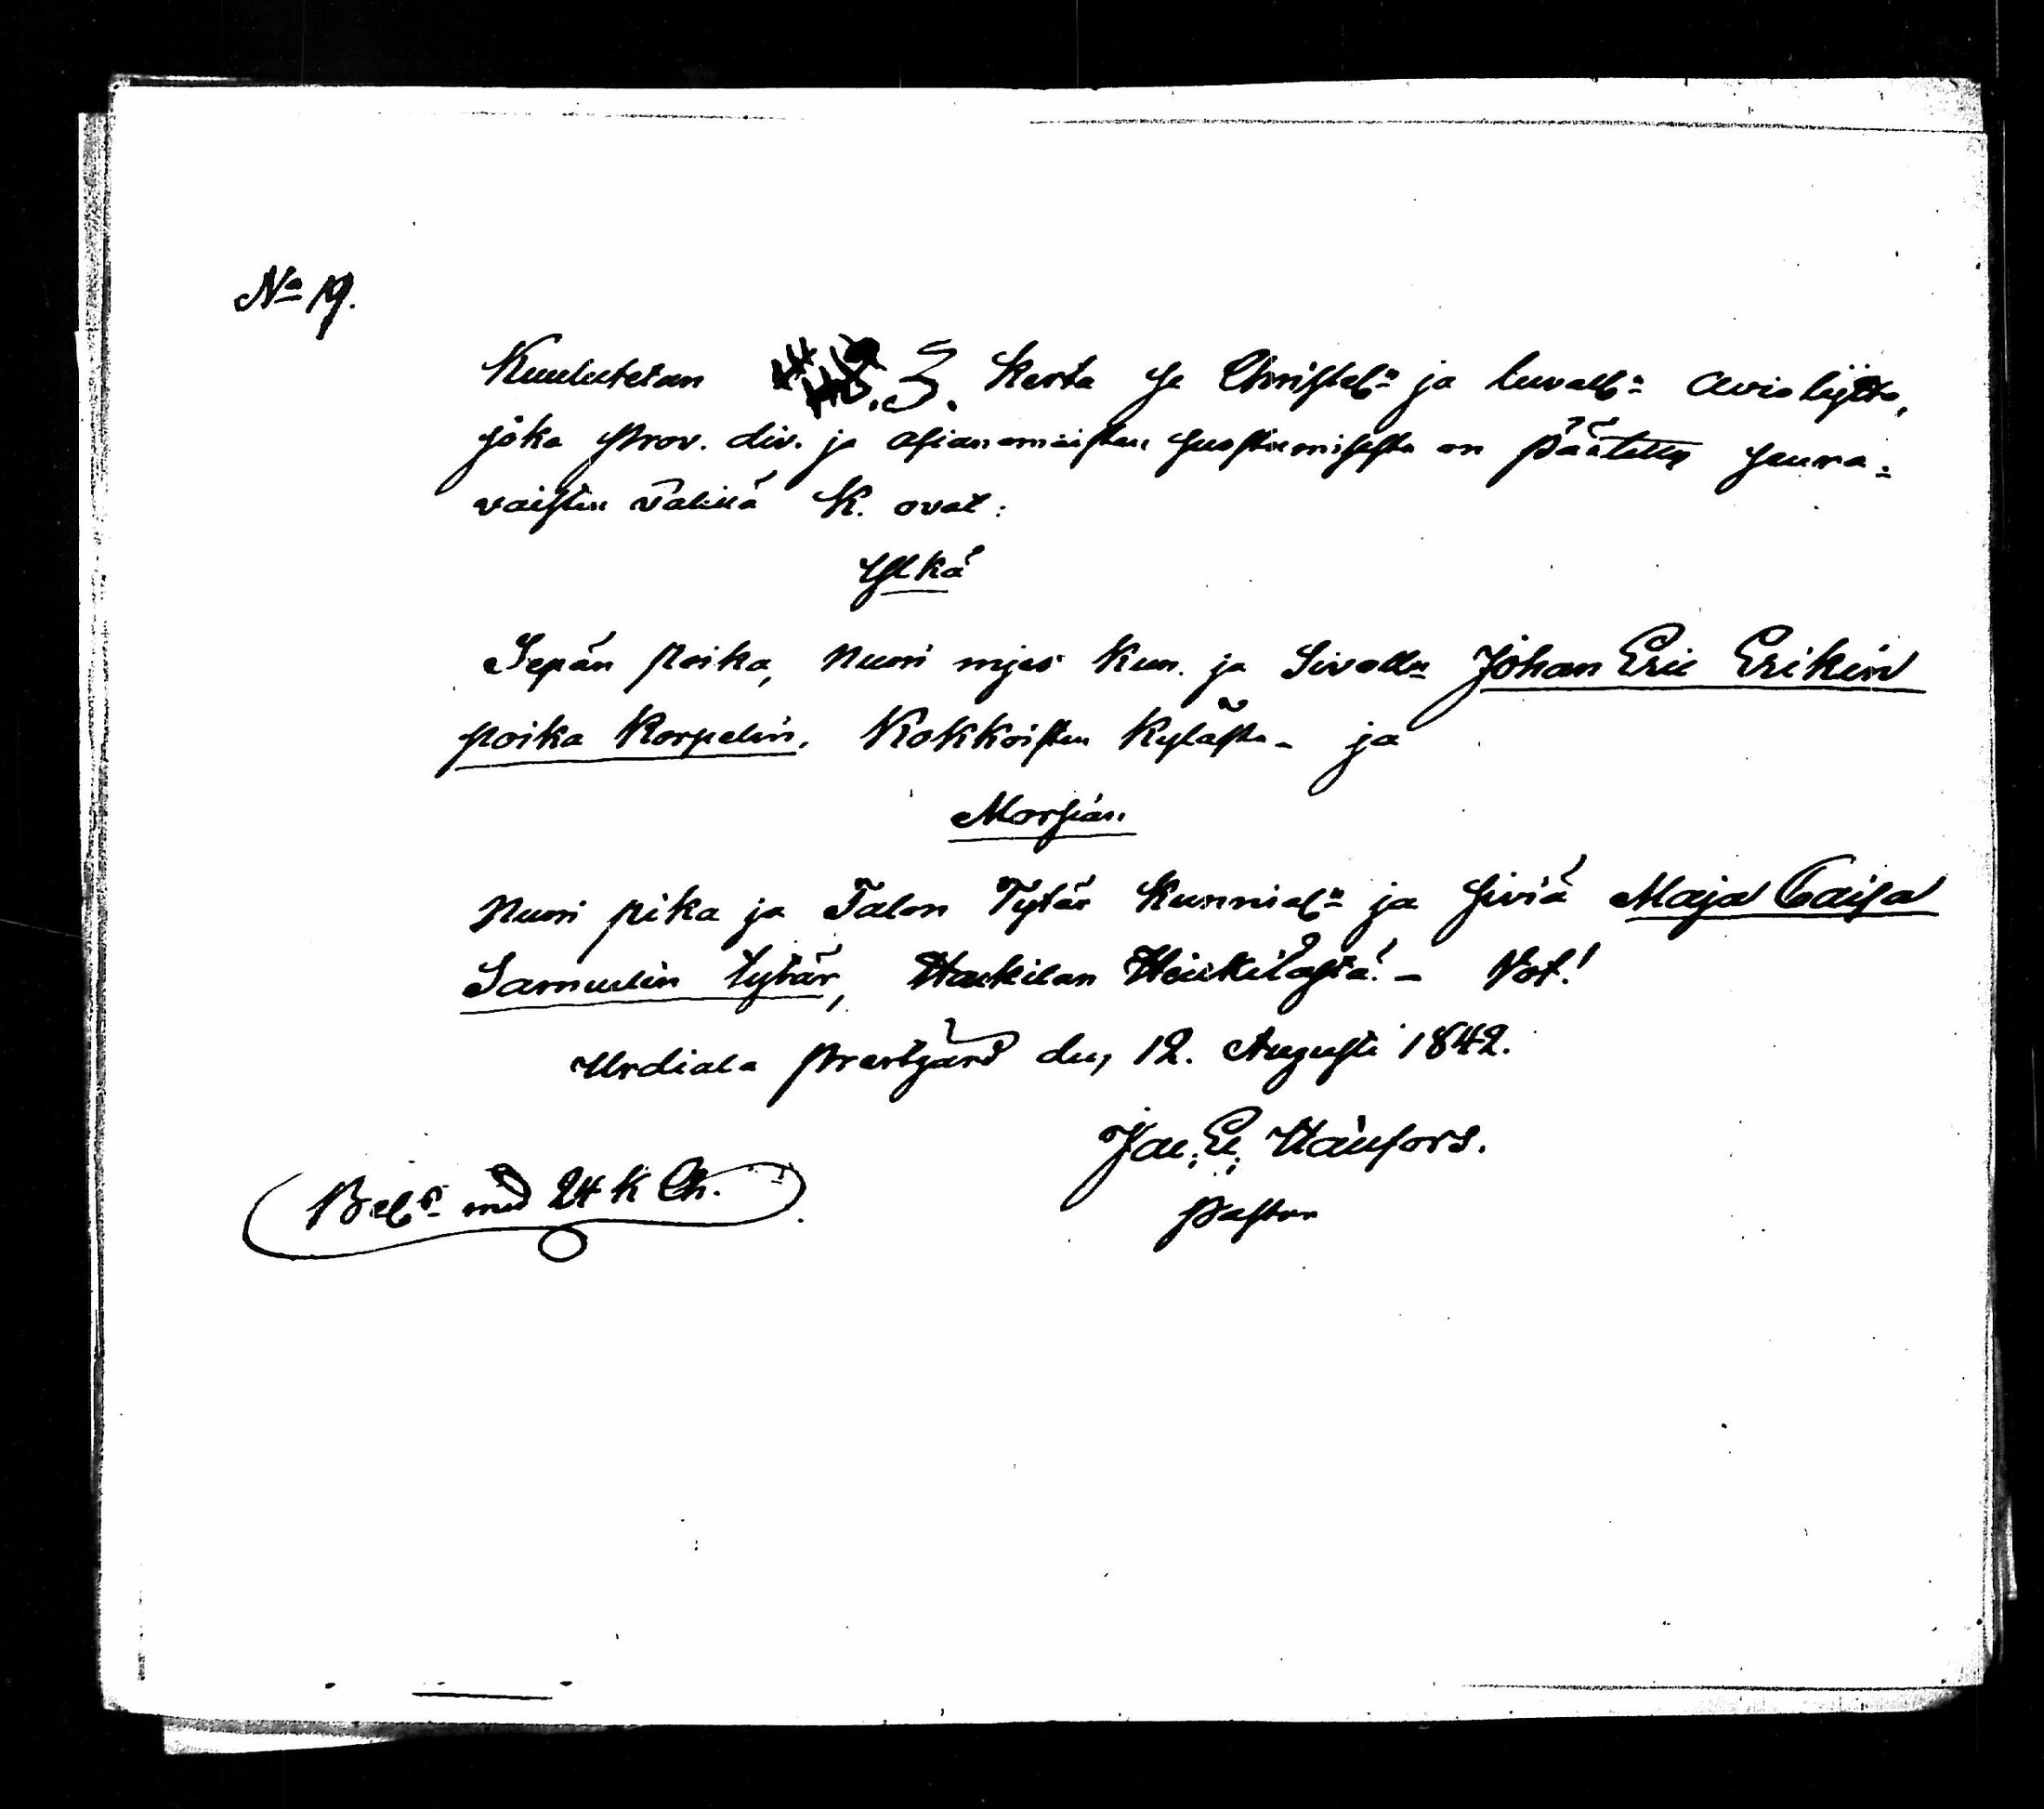 No 19.
Kuulutetan 3. kerta se Christel:n ja luvall:n Avio liytto,
joka prov. div. ja asianomaisten suostumisesta on päätetty seura-
vaisten välillä K. ovat:
Ylkä
Sepän poika, Nuori mjes Kun. ja Sivolln Johan Eric Erikin
poika Korpelin, Kokkoisten kylästä - ja
Morsian
Nuori pika ja Talon Tytär Kunnial:n ja siviä Maja Caisa
Samuelin tytär, Heikilästä. - Vot!
Urdiala prestgård den, 12. Augusti 1842.
Jac. E.
Pastor
med 24 K